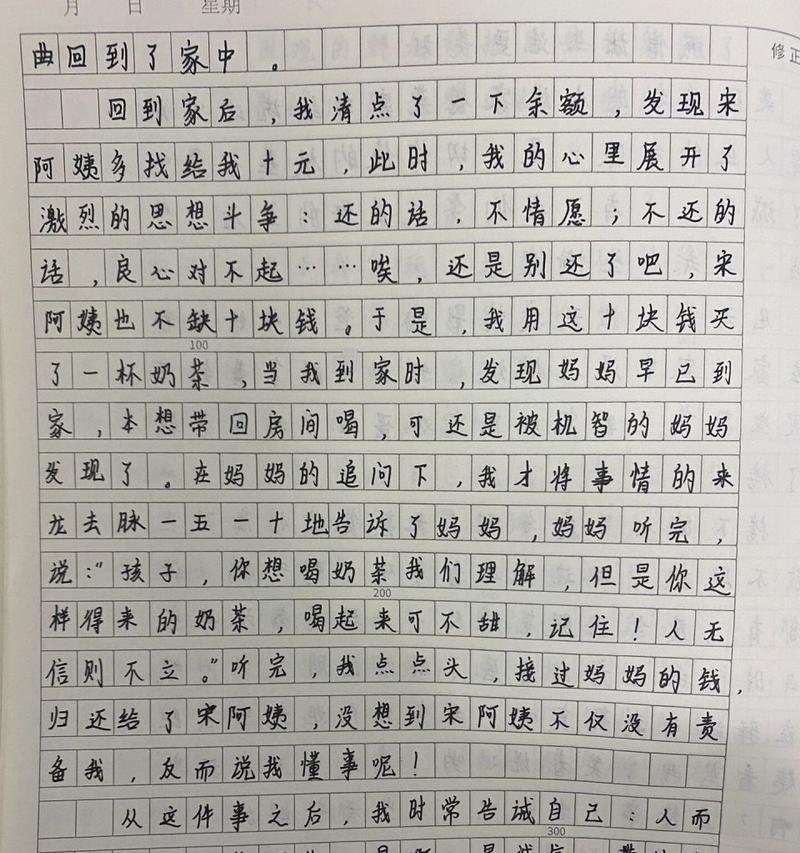 月 日 星期
修正
曲回到了家中。
回到家后，我清点了一下余额，发现宋
阿姨多找给我十元，此时，我的心里展开了
激烈的思想斗争：还的话，不情愿；不还的
话，良心对不起……唉，还是别还了吧，宋
阿姨也不缺十块钱。于是，我用这十块钱买
100
了一杯奶茶，当我到家时，发现妈妈早已到
家，本想带回房间喝，可还是被机智的妈妈
发现了。在妈妈的追问下，我才将事情的来
龙去脉一五一十地告诉了妈妈，妈妈听完，
说：“孩子，你想喝奶茶我们理解，但是你这
200
样得来的奶茶，喝起来可不甜，记住！人无
信则不立。”听完，我点点头，接过妈妈的钱，
归还给了宋阿姨，没想到宋阿姨不仅没有责
备我，反而说我懂事呢！
从这件事之后，我时常告诫自己：人而
300